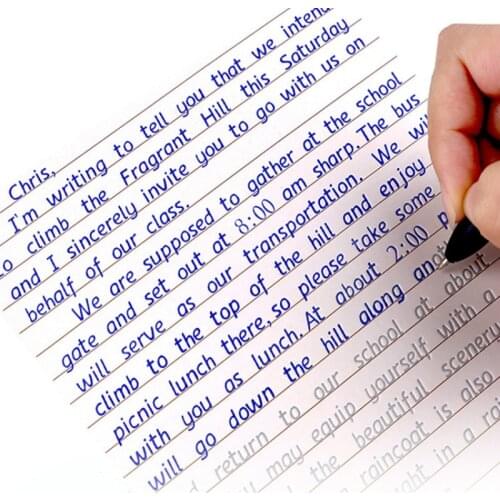 Chris,
I'm writing to tell you that we intend
to climb the Fragrant Hill this Saturday
and I sincerely invite you to go with us on
behalf of our class.
We are supposed to gather at the school
gate and set out at 8:00 am sharp. The bus
will serve as our transportation. We will
climb to the top of the hill and enjoy
picnic lunch there, so please take some
with you as lunch. At about 2:00 p
will go down the hill along another
d return to our school at about
u may equip yourself with a
d the beautiful scenery
raincoat is also
ght in a rain